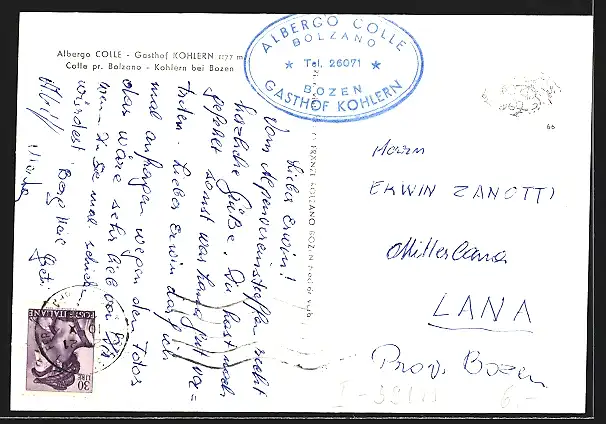 Albergo COLLE - Gasthof KOHLERN 1177 m
Colle pr. Bolzano - Kohlern bei Bozen
ALBERGO COLLE
BOLZANO
* Tel. 26071 *
BOZEN
GASTHOF KOHLERN
Lieber Erwin!
Vom Alpenvereinstreffen recht
herzliche Grüße. Du hast noch
gefehlt sonst war ganz gut
Lieber Erwin darf ich
mal anfragen wegen den Fotos
das wäre sehr lieb von Dir
wenn Du sie mal schicken
würdest. Berg Heil
66
Herrn
ERWIN ZANOTTI
Mitterlana
LANA
Prov. Bozen
POSTE ITALIANE
30 LIRE
6.-